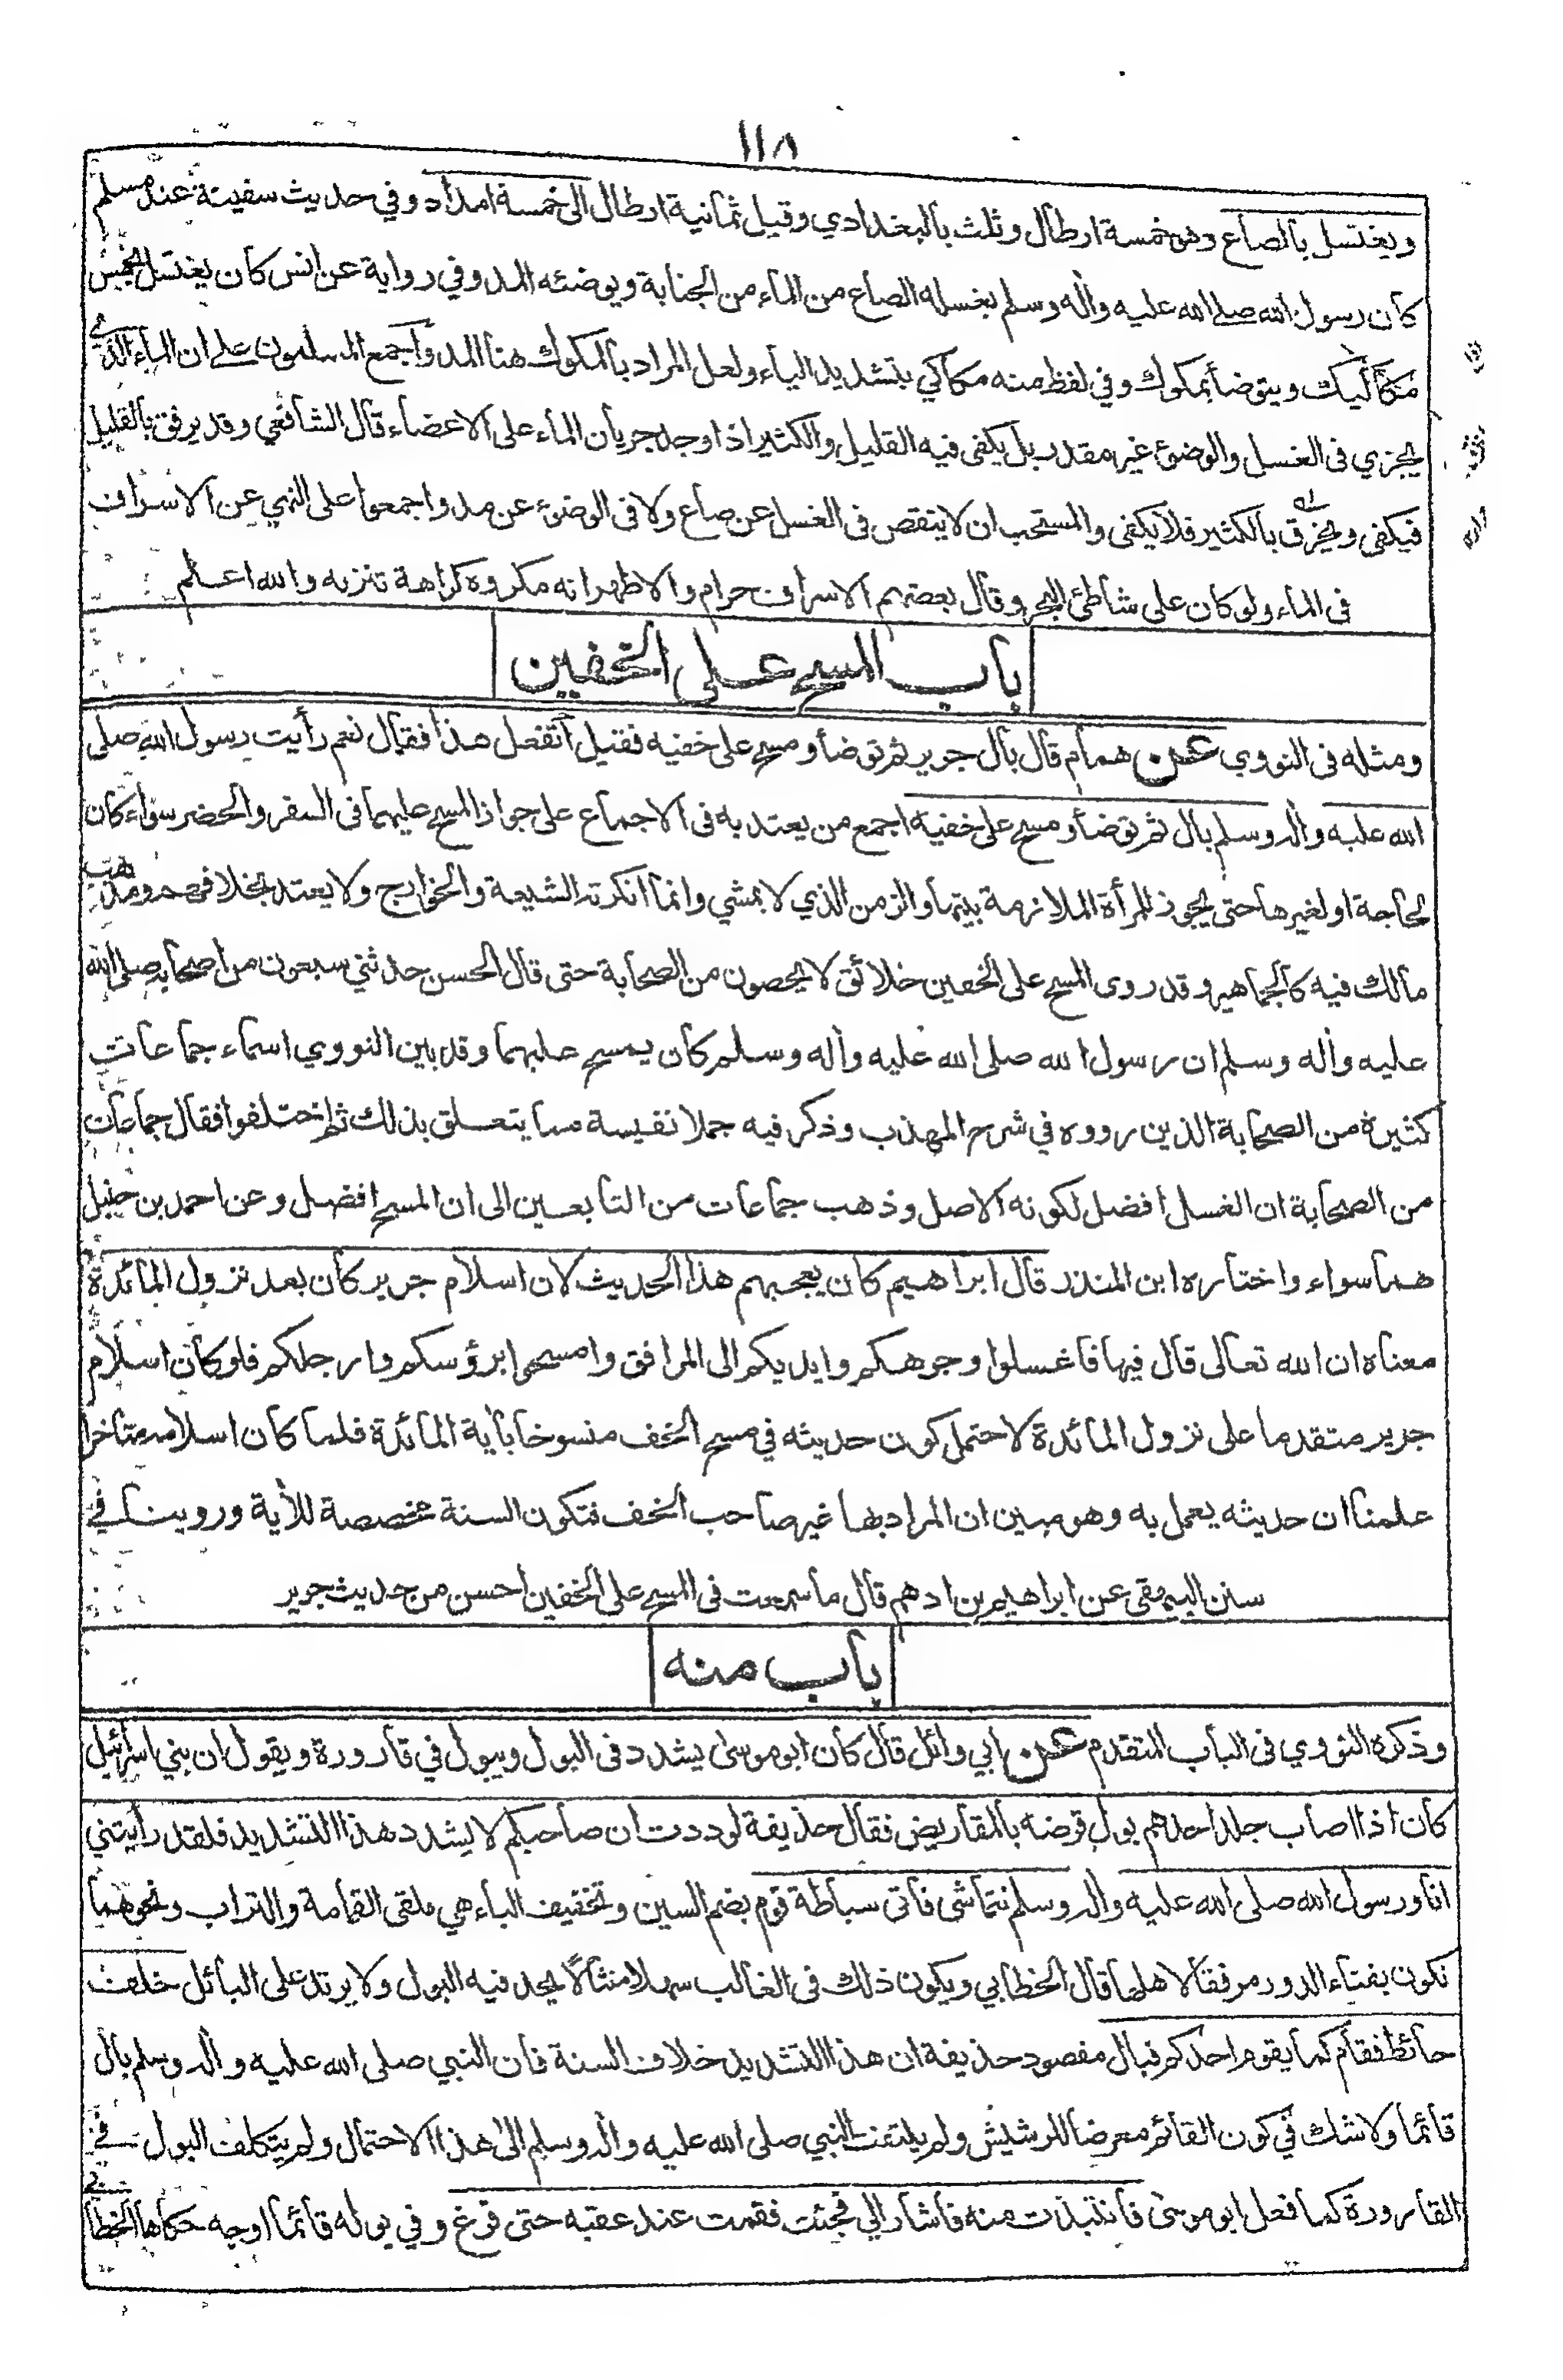 ١١٨
ويغتسل بالصاع وهو خمسة ارطال وثلث بالبغدادي وقيل ثمانية ارطال الى خمسة امداد وفي حديث سفينة عند مسلم
كان رسول الله صلى الله عليه وأله وسلم يغسله الصاع من الماء من الجنابة ويوضئه المد وفي رواية عن انس كان يغتسل بخمس
مكاكيك ويتوضأ بمكوك وفي لفظ منه مكاكي بتشديد الياء ولعل المراد بالمكوك هنا المد وأجمع المسلمون على ان الماء الذي
يجزي فى الغسل والوضوء غير مقدر بل يكفى فيه القليل والكثير اذا وجد جريان الماء على الاعضاء قال الشافعي وقد يرفق بالقليل
فيكفى ويخرق بالكثير فلا يكفى والمستحب ان لا ينقص فى الغسل عن صاع ولا فى الوضوء عن مد واجمعوا على النهي عن الاسراف
فى الماء ولو كان على شاطئ البحر وقال بعضهم الاسراف حرام والاظهر انه مكروه كراهة تنزيه والله اعلم
باب المسح على الخفين
ومثله فى النووي عن همام قال بال جرير ثم توضأ ومسح على خفيه فقيل أتفعل هذا فقال نعم رأيت رسول الله صلى
الله عليه وأله وسلم بال ثم توضأ ومسح على خفيه اجمع من يعتد به فى الاجماع على جواز المسح عليهما فى السفر والحضر سواء كان
لحاجة او لغيرها حتى يجوز للمرأة الملازمة بيتها والزمن الذي لا يمشي وانما انكرته الشيعة والخوارج ولا يعتد بخلافهم ومذهب
مالك فيه كالجماهير وقد روى المسح على الخفين خلائق لا يحصون من الصحابة حتى قال الحسن حدثني سبعون من اصحابه صلى الله
عليه وأله وسلم ان رسول الله صلى الله عليه وأله وسلم كان يمسح عليهما وقد بين النووي اسماء جماعات
كثيرة من الصحابة الذين رووه في شرح المهذب وذكر فيه جملا نفيسة مما يتعلق بذلك ثم اختلفوا فقال جماعات
من الصحابة ان الغسل افضل لكونه الاصل وذهب جماعات من التابعين الى ان المسح افضل وعن احمد بن حنبل
هما سواء واختاره ابن المنذر قال ابراهيم كان يعجبهم هذا الحديث لان اسلام جرير كان بعد نزول المائدة
معناه ان الله تعالى قال فيها فاغسلوا وجوهكم وايديكم الى المرافق وامسحوا برؤسكم وارجلكم فلو كان اسلام
جرير متقدما على نزول المائدة لاحتمل كون حديثه في مسح الخف منسوخا بأية المائدة فلما كان اسلامه متاخرا
علمنا ان حديثه يعمل به وهو مبين ان المراد بها غير صاحب الخف فتكون السنة مخصصة للأية وروينا في
سنن البيهقى عن ابراهيم بن ادهم قال ما سمعت فى المسح على الخفين احسن من حديث جرير
باب منه
وذكره النووي فى الباب المتقدم عن ابي وائل قال كان ابو موسى يشدد فى البول ويبول في قارورة ويقول ان بني اسرائيل
كان اذا اصاب جلد احدهم بول قرضه بالمقاريض فقال حذيفة لوددت ان صاحبكم لا يشدد هذا التشديد فلقد رأيتني
انا ورسول الله صلى الله عليه وأله وسلم نتماشى فأتى سباطة قوم بضم السين وتخفيف الباء هي ملقى القمامة والتراب ونحوهما
تكون بفناء الدور مرفقا لاهلها قال الخطابي ويكون ذلك فى الغالب سهلا منثالا يحد فيه البول ولا يرتد على البائل خلف
حائط فقام كما يقوم احدكم فبال مقصود حذيفة ان هذا التشديد خلاف السنة فان النبي صلى الله عليه وأله وسلم بال
قائما ولا شك في كون القائم معرضا للرشيش ولم يلتفت النبي صلى الله عليه وأله وسلم الى هذا الاحتمال ولم يتكلف البول في
القارورة كما فعل ابو موسى فانتبذت منه فاشار الي فجئت فقمت عند عقبه حتى فرغ وفي بوله قائما اوجه حكاها الخطا